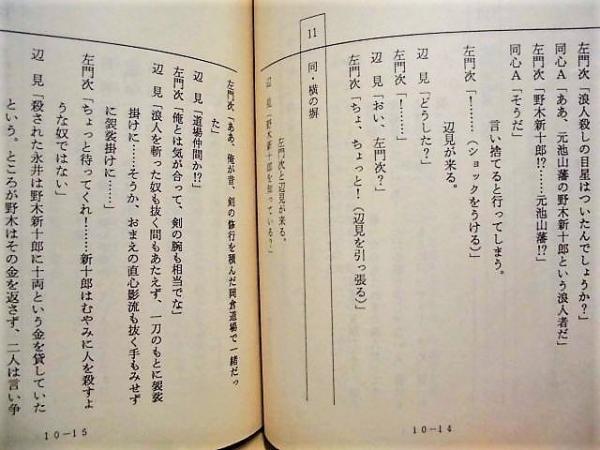 左門次「浪人殺しの目星はついたんでしょうか?」
同心A「ああ、元池山藩の野木新十郎という浪人者だ」
左門次「野木新十郎!?……元池山藩!?」
同心A「そうだ」
言い捨てると行ってしまう。
左門次「!……(ショックをうける)」
辺見が来る。
辺 見「どうした?」
左門次「!……」
辺 見「おい、左門次?」
左門次「ちょ、ちょっと!(辺見を引っ張る)」
11 同・横の塀
左門次と辺見が来る。
辺 見「野木新十郎を知っている?」
10-14
左門次「ああ、俺が昔、剣の修行を積んだ岡倉道場で一緒だっ
た」
辺 見「道場仲間か!?」
左門次「俺とは気が合って、剣の腕も相当でな」
辺 見「浪人を斬った奴も抜く間もあたえず、一刀のもとに袈裟
掛けに……そうか、おまえの直心影流も抜く手もみせず
に袈裟掛けに……」
左門次「ちょっと待ってくれ!……新十郎はむやみに人を殺すよ
うな奴ではない」
辺 見「殺された永井は野木新十郎に十両という金を貸していた
という。ところが野木はその金を返さず、二人は言い争
10-15